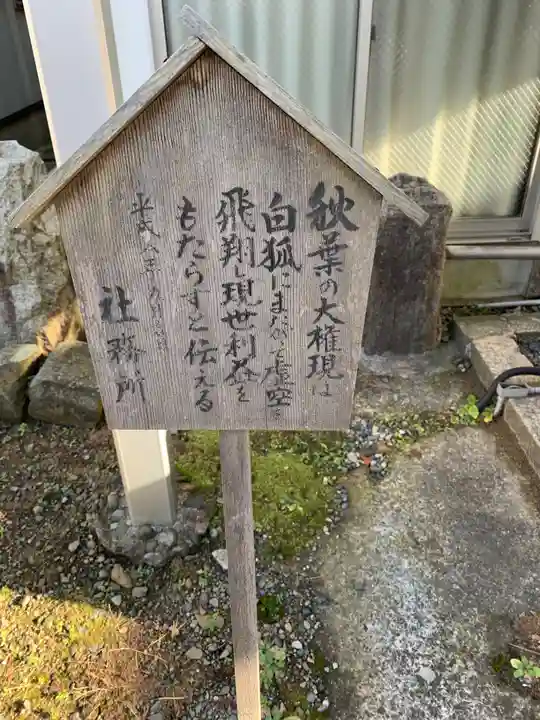 秋葉の大権現は
白狐にまたがって虚空を
飛翔し現世利益を
もたらすと伝える
平成八年九月
社務所